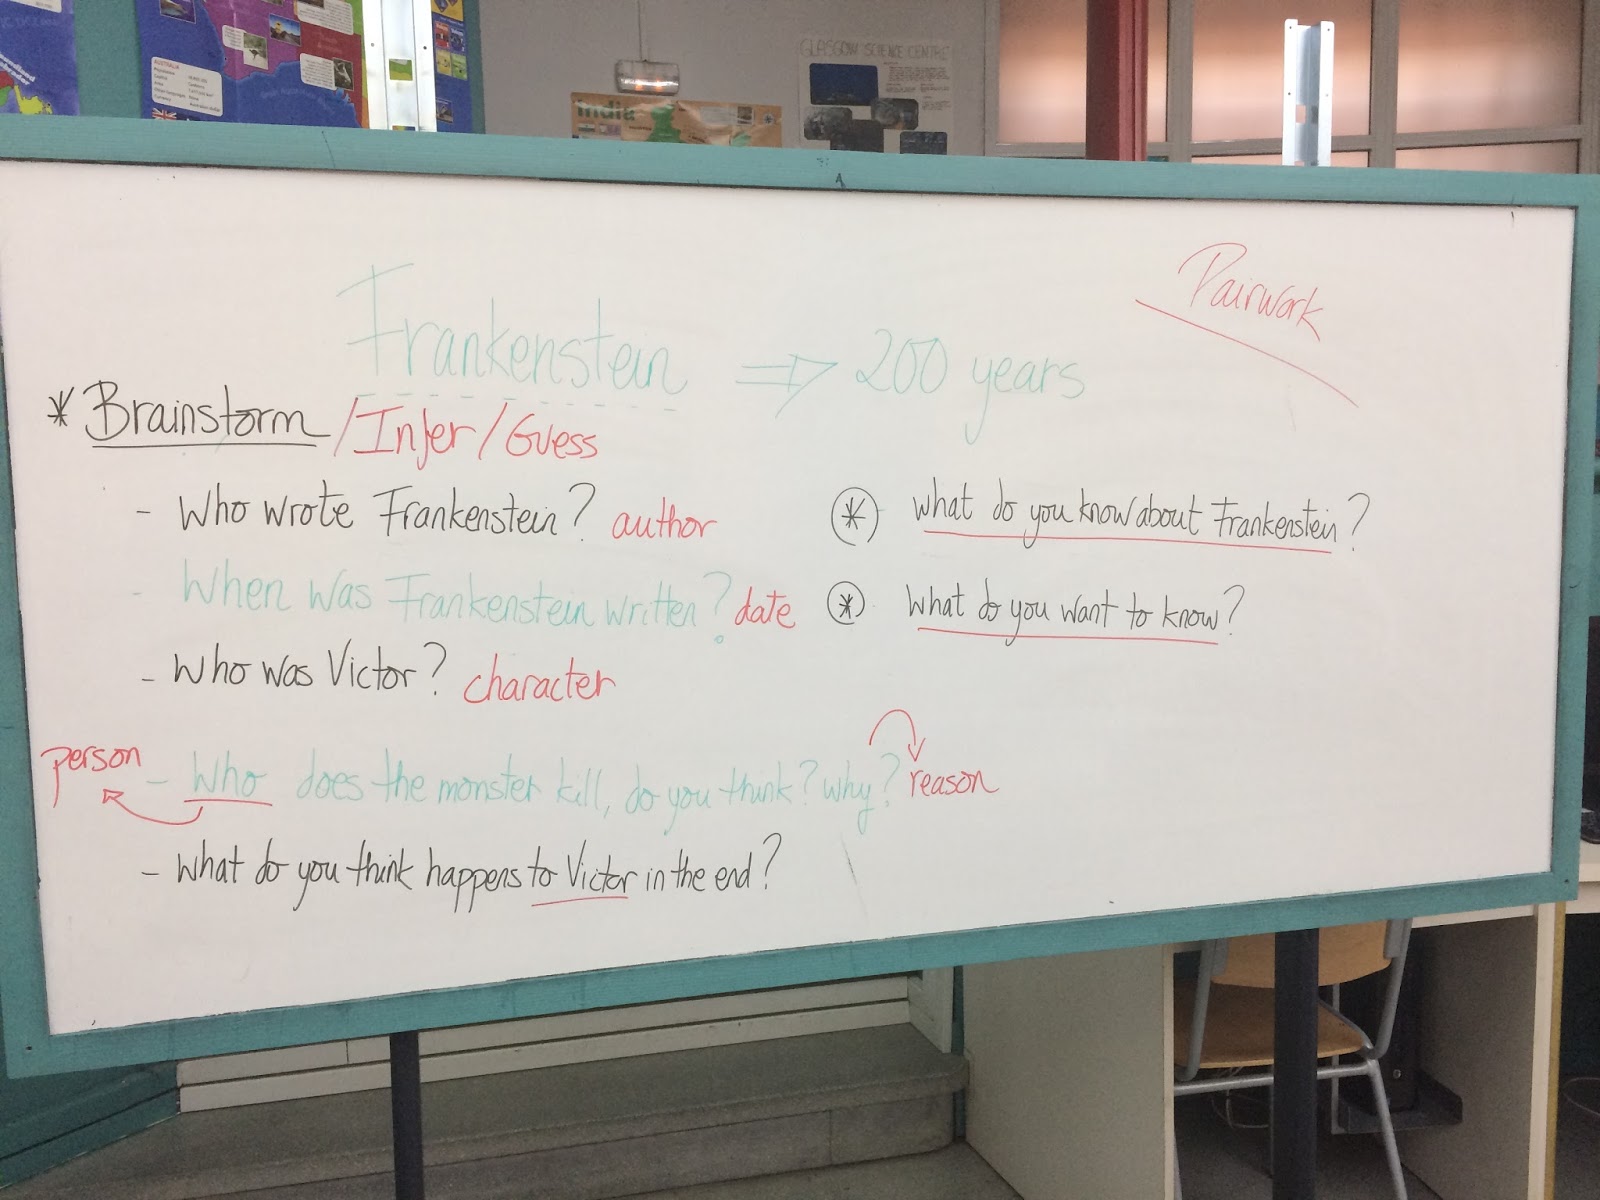 AUSTRALIA
india
GLASGOW SCIENCE CENTRE
Pairwork
Frankenstein ⇒ 200 years
* Brainstorm / Infer / Guess
- Who wrote Frankenstein? author
- When was Frankenstein written? date
- Who was Victor? character
person
- Who does the monster kill, do you think? why? reason
- What do you think happens to Victor in the end?
* what do you know about Frankenstein?
* What do you want to know?